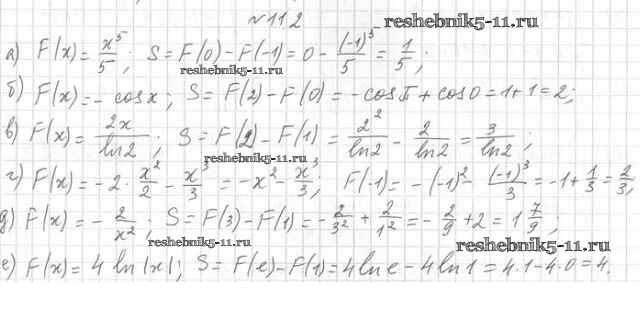 №112
reshebnik5-11.ru
а) F(x) = x⁵/5; S = F(0) - F(-1) = 0 - (-1)³/5 = 1/5;
reshebnik5-11.ru
б) F(x) = - cos x; S = F(2) - F(0) = - cos π + cos 0 = 1+1 = 2;
в) F(x) = 2x/ln2; S = F(2) - F(1) = 2²/ln2 - 2/ln2 = 3/ln2;
reshebnik5-11.ru
г) F(x) = -2·x²/2 - x³/3 = -x² - x³/3; F(-1) = -(-1)² - (-1)³/3 = -1 + 1/3 = 2/3;
д) F(x) = - 2/x²; S = F(3) - F(1) = - 2/3² + 2/1² = - 2/9 + 2 = 1 7/9;
reshebnik5-11.ru
reshebnik5-11.ru
е) F(x) = 4 ln|x|; S = F(e) - F(1) = 4 ln e - 4 ln 1 = 4·1 - 4·0 = 4.